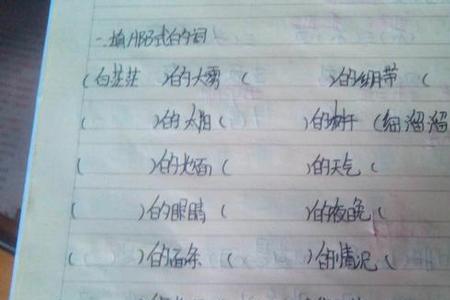 一.填ABB式的词
(白茫茫 )的大雾 ( )的绷带 (
( )的太阳 ( )的树干 (细溜溜
( )的 面 ( )的天气 (
( )的眼睛 ( )的夜晚 (
( )的面条 ( )的情况 (